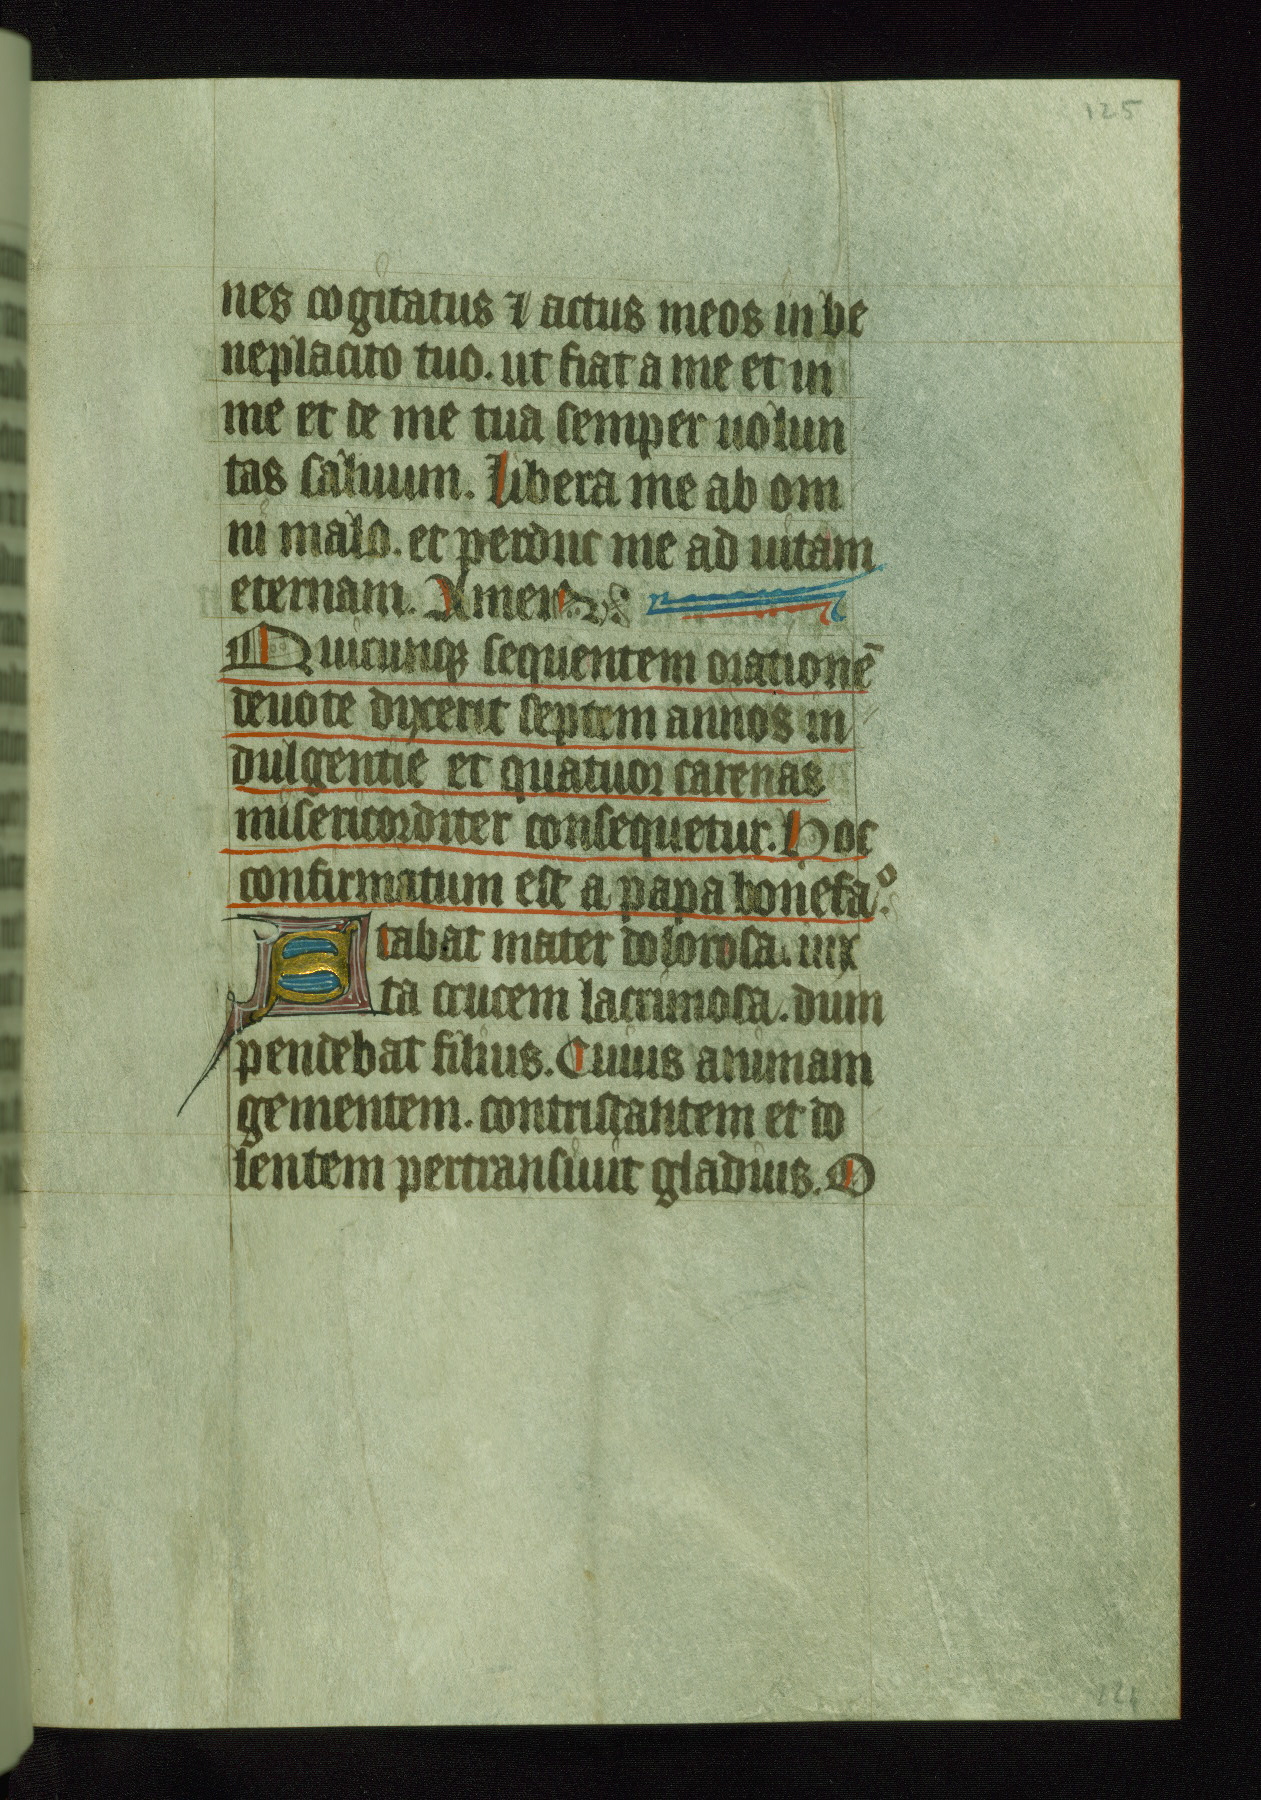 125
nes cogitatus ⁊ actus meos in be
neplacito tuo. ut fiat a me et in
me et de me tua semper uolun
tas saluum. Libera me ab om
ni malo. et perduc me ad uitam
eternam. Amen
Quicunqꝫ sequentem orationē
deuote dixerit septem annos in
dulgentie et quatuor carenas
misericorditer consequetur. Hoc
confirmatum est a papa bonefaº.
Stabat mater dolorosa. iux
ta crucem lacrimosa. dum
pendebat filius. Cuius animam
gementem. contristantem et do
lentem pertransiuit gladius. O